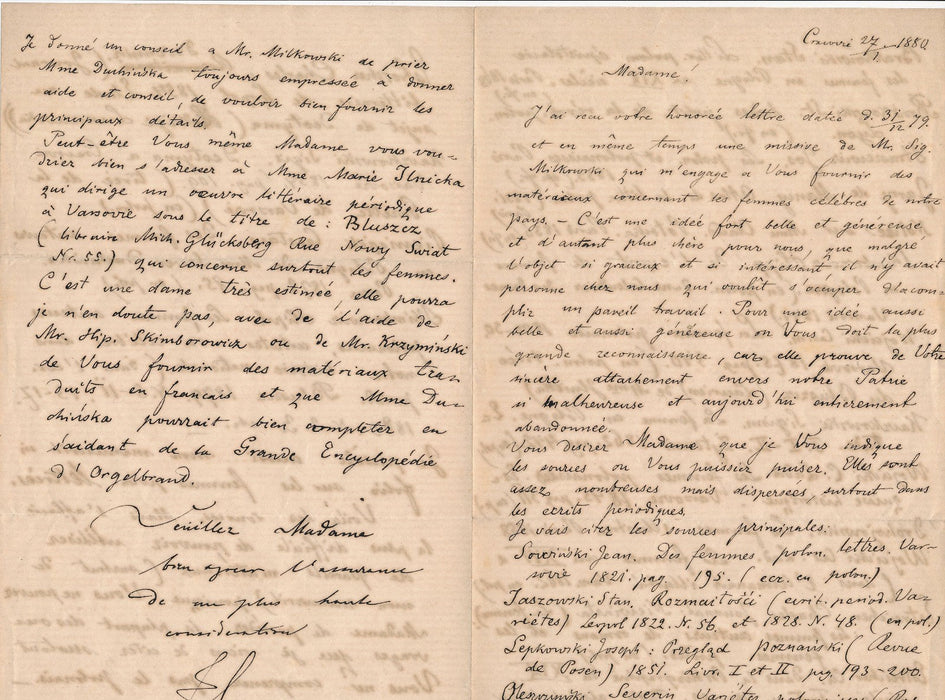 Cracovie 27/1. 1880
Madame!
J'ai recu votre honorée lettre datée d. 31/12 79.
et en même temps une missive de Mr. Sig.
Milkowski qui m'engage a Vous fournir des
matériaux concernant les femmes célèbres de notre
pays. – C'est une idée fort belle et généreuse
et d'autant plus chère pour nous, que malgré
l'objet si gracieux et si intéressant il n'y avait
personne chez nous qui voulut s'occuper d'acom-
plir un pareil travail. Pour une idée aussi
belle et aussi généreuse on Vous doit la plus
grande reconnaissance, car elle prouve de Votre
sincère attachement envers notre Patrie
si malheureuse et aujourd'hui entierement
abandonnée.
Vous desirez Madame que je Vous indique
les sources ou Vous puissiez puiser. Elles sont
assez nombreuses mais dispersées, surtout dans
les ecrits periodiques.
Je vais citer les sources principales:
Sowiński Jean. Des femmes polon. lettres. Var-
sovie 1821. pag. 195. (ecr. en polon.)
Jaszowski Stan. Rozmaitości (ecrit. period. Va-
riétés) Leopol 1822. N. 56. et 1828. N. 48. (en pol.)
Lepkowski Joseph: Przegląd poznański (Revue
de Posen) 1851. Livr. I et II pag. 193–200.
Oleszczynski Severin Varietes
Je donné un conseil a Mr. Milkowski de prier
Mme Duchińska toujours empressée à donner
aide et conseil, de vouloir bien fournir les
principaux détails.
Peut-être Vous même Madame vous vou-
driez bien s'adresser à Mme Marie Ilnicka
qui dirige un oeuvre littéraire périodique
à Varsovie sous le titre de: Bluszcz
(libraire Mich. Glücksberg Rue Nowy Swiat
Nr. 55.) qui concerne surtout les femmes.
C'est une dame très estimée, elle pourra
je n'en doute pas, avec de l'aide de
Mr. Hip. Skimborowicz ou de Mr. Krzymiński
de Vous fournir des matériaux tra-
duits en français et que Mme Du-
chińska pourrait bien completer en
s'aidant de la Grande Encyclopédie
d'Orgelbrand.
Veuillez Madame
bien agreer l'assurance
de ma plus haute
consideration